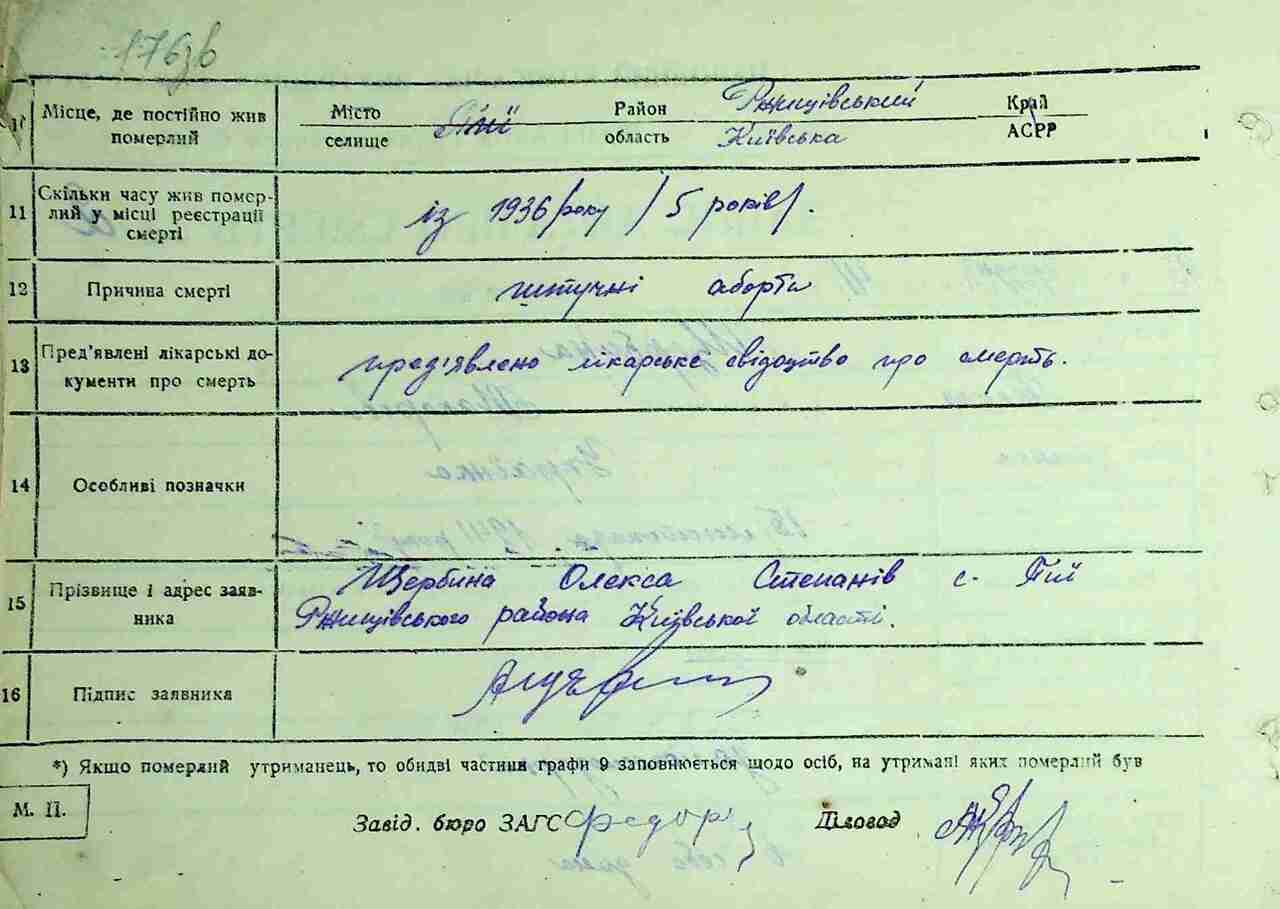 176зв
Місце, де постійно жив
померлий
Місто
селище
Пії
Район
область
Ржищівський
Київська
Край
АСРР
11
Скільки часу жив помер-
лий у місці реєстрації
смерті
із 1936/року / 5 років/.
12
Причина смерті
штучні аборти
13
Пред'явлені лікарські до-
кументи про смерть
пред'явлено лікарське свідоцтво про смерть.
14
Особливі позначки
15
Прізвище і адрес заяв-
ника
Щербина Олекса Степанів с. Пії
Ржищівського района Київської области.
16
Підпис заявника
*) Якщо померлий утриманець, то обидві частини графи 9 заповнюється щодо осіб, на утримані яких померлий був
М. П.
Завід. бюро ЗАГС
Діловод